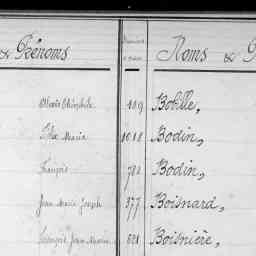 & Prénoms Noms & P
Alexis Théophile 409 Bobille,
Félix Marie 1018 Bodin,
François 780 Bodin,
Jean Marie Joseph 377 Boisnard,
François Jean Marie 821 Boisnière,